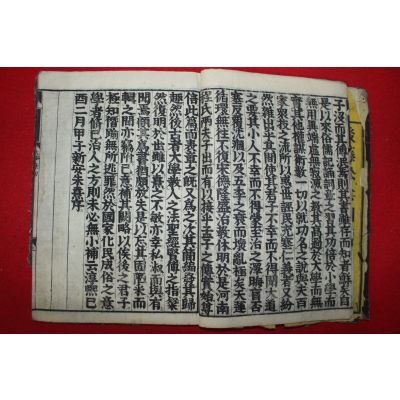 子沒而其傳泯焉則其書雖存而知者鮮矣自
是以來俗儒記誦詞章之習其功倍於小學而
無用異端虛無寂滅之教其高過於大學而無
實其他權謀術數一切以就功名之說與夫百
家衆技之流所以惑世誣民充塞仁義者又紛
然雜出乎其間使其君子不幸而不得聞大道
之要其小人不幸而不得蒙至治之澤晦盲否
塞反覆沈痼以及五季之衰而壞亂極矣天運
循環無往不復宋德隆盛治教休明於是河南
程氏兩夫子出而有以接乎孟子之傳實始尊
信此篇而表章之既又爲之次其簡編發其歸
趣然後古者大學教人之法聖經賢傳之指粲
然復明於世雖以熹之不敏亦幸私淑而與有
聞焉顧其爲書猶頗放失是以忘其固陋采而
輯之間亦竊附己意補其闕略以俟後之君子
極知僭踰無所逃罪然於國家化民成俗之意
學者修己治人之方則未必無小補云淳熙己
酉二月甲子新安朱熹序